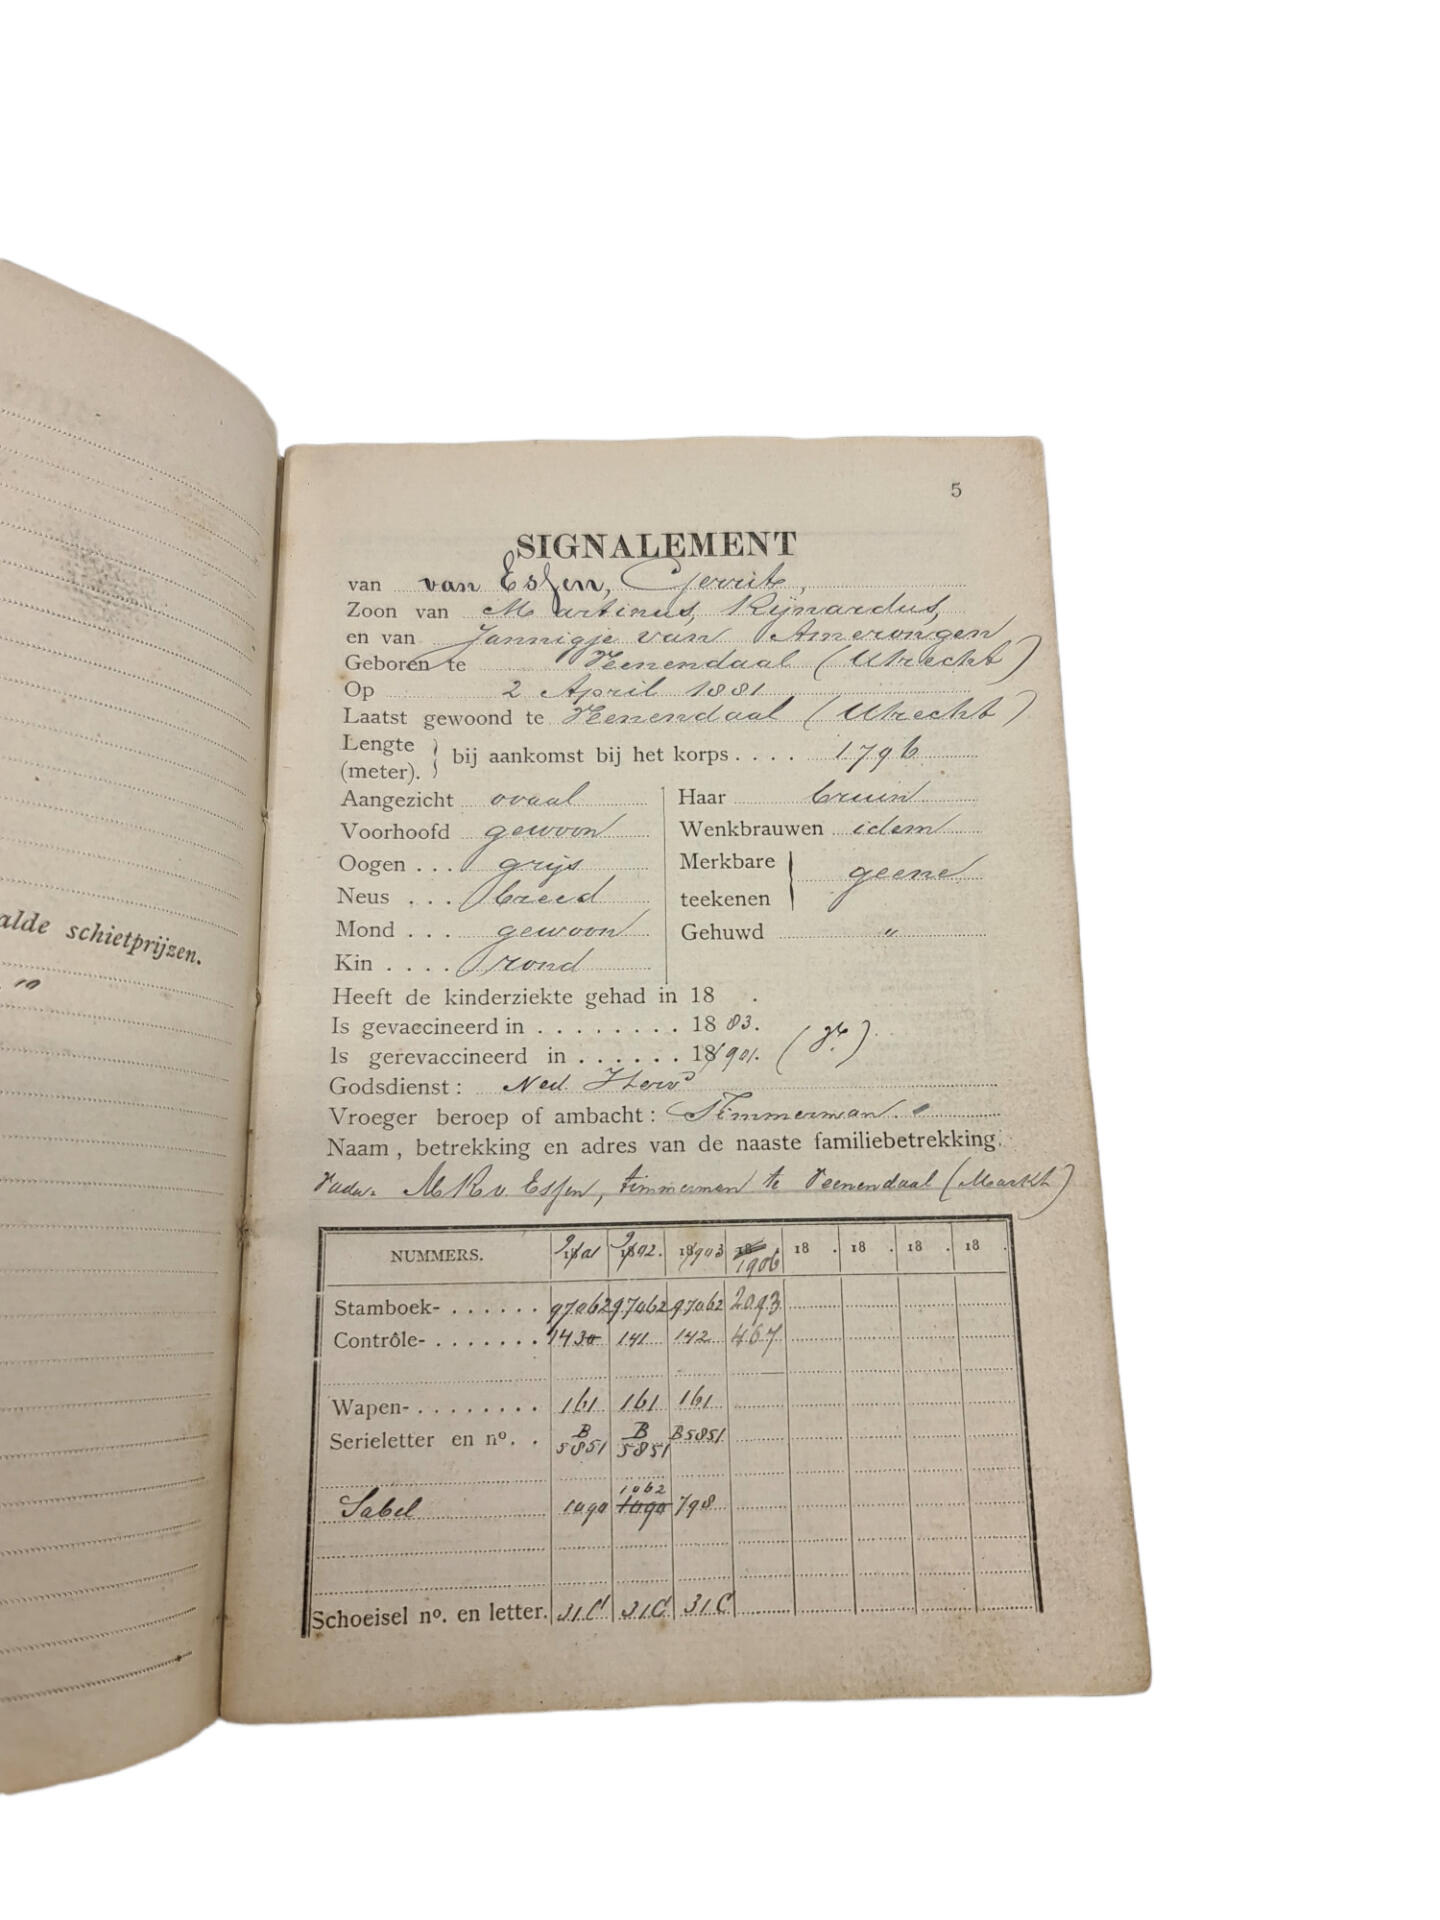 alde schietprijzen.
5
SIGNALEMENT
van van Essen, Gerrit,
Zoon van Martinus, Rijnardus,
en van Jannigje van Amerongen
Geboren te Veenendaal (Utrecht)
Op 2 April 1881
Laatst gewoond te Veenendaal (Utrecht)
Lengte (meter). } bij aankomst bij het korps . . . . 1796
Aangezicht ovaal
Voorhoofd gewoon
Oogen . . . grijs
Neus . . . breed
Mond . . . gewoon
Kin . . . . rond
Haar bruin
Wenkbrauwen idem
Merkbare teekenen } geene
Gehuwd "
Heeft de kinderziekte gehad in 18 .
Is gevaccineerd in . . . . . . . . 1883.
Is gerevaccineerd in . . . . . . 1901.
Godsdienst: Ned. Herv
Vroeger beroep of ambacht: Timmerman.
Naam, betrekking en adres van de naaste familiebetrekking:
Vader. M R v. Essen, timmerman te Veenendaal (Markt)
NUMMERS. 1901 1902. 1903 1906 18 . 18 . 18 . 18 .
Stamboek- . . . . . . 97062 97062 97062 2093
Contrôle- . . . . . . . 1430 141 142 467
Wapen- . . . . . . . . 161 161 161
Serieletter en nº. . . B 5851 B 5851 B5851
1062
Sabel 1090 1090 798
Schoeisel nº. en letter. 31C 31C 31C